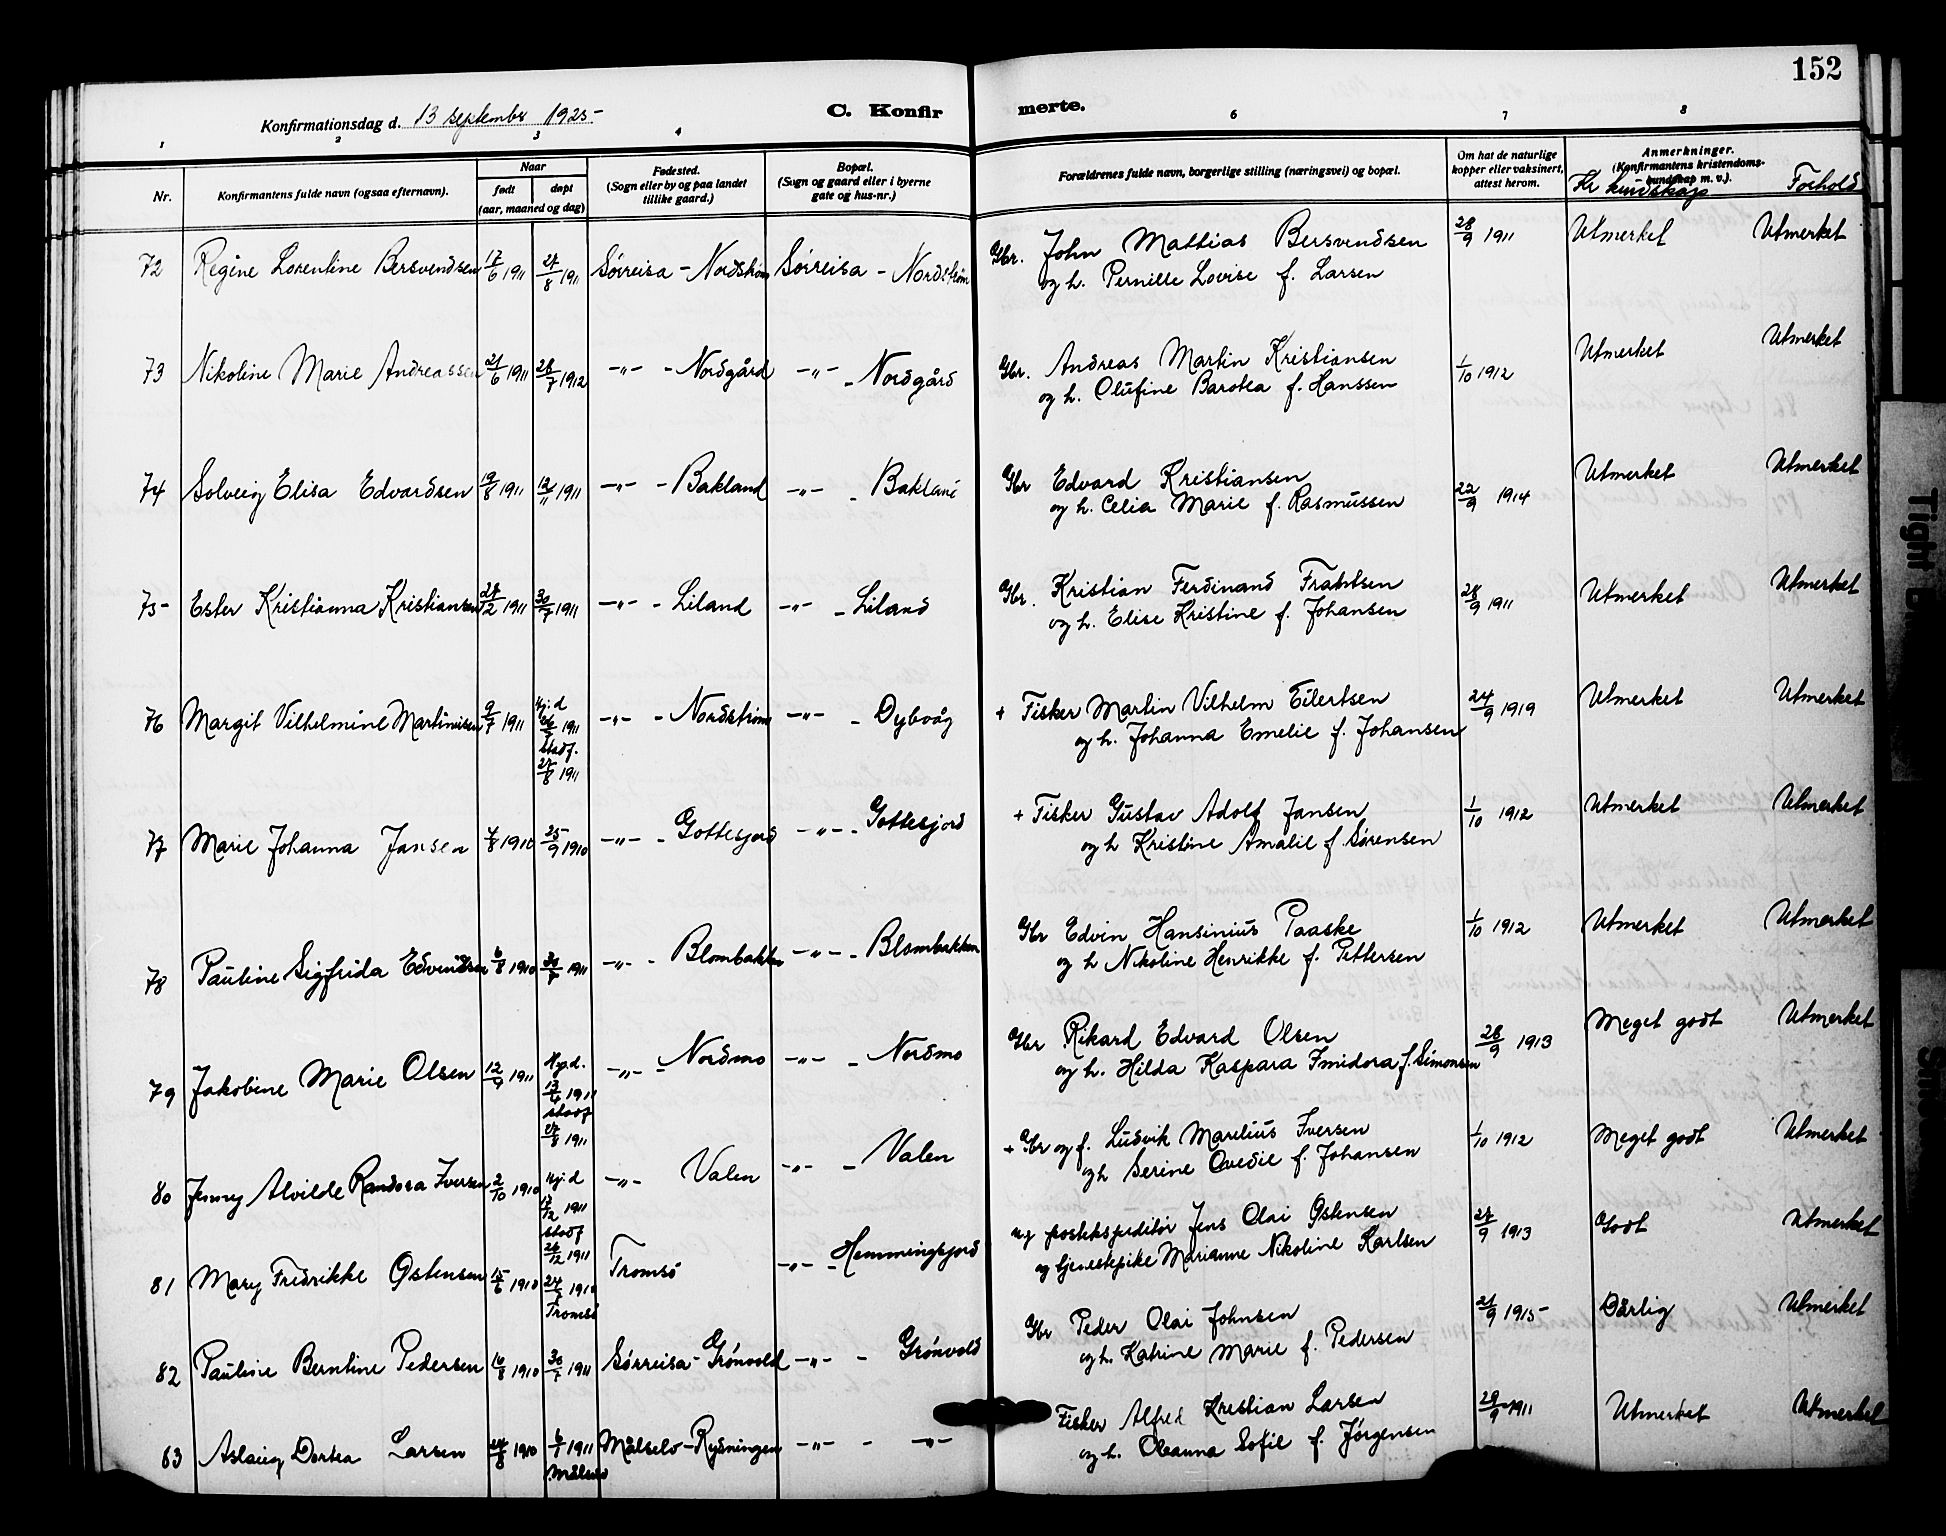 152
Konfirmationsdag d. 13 september 1925-
C. Konfir merte.
1 2 3 4 6 7 8
Nr.
Konfirmantens fulde navn (ogsaa efternavn).
Naar
født døpt
(aar, maaned og dag)
Fødested.
(Sogn eller by og paa landet
tillike gaard.)
Bopæl.
(Sogn og gaard eller i byerne
gate og hus-nr.)
Forældrenes fulde navn, borgerlige stilling (næringsvei) og bopæl.
Om hat de naturlige
kopper eller vaksinert,
attest herom.
Anmerkninger.
(Konfirmantens kristendoms-
kundskap m. v.).
Kr kundskap Forhold
72 Regine Lorentine Bersvendsen 17/6 1911 27/8 1911 Sørreisa - Nordstrøm Sørreisa - Nordstrøm Gbr. John Mattias Bersvendsen 28/9 1911 Utmerket Utmerket
og h. Pernille Lovise f. Larsen
73 Nikoline Marie Andreassen 21/6 1911 28/7 1912 -"- - Nordgård -"- - Nordgård Gbr. Andreas Martin Kristiansen 1/10 1912 Utmerket Utmerket
og h. Olufine Barolea f. Hanssen
74 Solveig Elisa Edvardsen 19/8 1911 12/11 1911 -"- - Bakland -"- - Bakland Gbr Edvard Kristiansen 22/9 1914 Utmerket Utmerket
og h. Celia Marie f. Rasmussen
75- Ester Kristianna Kristiansen 27/2 1911 30/7 1911 -"- - Liland -"- - Liland Gbr. Kristian Ferdinand Frantsen 28/9 1911 Utmerket Utmerket
og h. Elise Kristine f. Johansen
76 Margit Vilhelmine Martinisen 9/7 1911 Hj.d 1911 stadf. 27/8 1911 -"- - Nordstrøm -"- - Dybvåg + Fisker Martin Vilhelm Eilertsen 24/9 1919 Utmerket Utmerket
og h. Johanna Emelie f. Johansen
77 Marie Johanna Jansen 4/8 1910 25/9 1910 -"- - Gottesjord -"- - Gottesjord + Fisker Gustav Adolf Jansen 1/10 1912 Utmerket Utmerket
og h Kristine Amalie f. Sørensen
78 Pauline Sigfrida Edvindsen 6/8 1910 30/7 1911 -"- - Blombakken -"- - Blombakken Gbr Edvin Hansinius Paaske 1/10 1912 Utmerket Utmerket
og h Nikoline Henrikke f. Pettersen
79 Jakobine Marie Olsen 12/9 1911 Hj.d. 1911 stadf 27/8 1911 -"- - Nordmo -"- - Nordmo Gbr Rikard Edvard Olsen 28/9 1913 Meget godt Utmerket
og h. Hilda Kaspara Imidora f. Simonsen
80 Jenny Alvilde Randora Iversen 2/10 1910 Hj.d 17/12 1911 stadf 26/12 1911 -"- Valen -"- - Valen + Gbr og f. Ludvik Marelius Iversen 1/10 1912 Meget godt Utmerket
og h Serine Ovedie f. Johansen
81 Mary Fredrikke Østensen 15/6 1910 24/7 1910 Tromsø Tromsø -"- - Hemmingsjord ug postekspeditør Jens Olai Østensen 27/9 1913 Godt Utmerket
og tjenestepike Marianne Nikoline Karlsen
82 Pauline Berntine Pedersen 16/8 1910 30/7 1911 Sørreisa - Grönvold -"- - Grönvold Gbr Peder Olai Johnsen 21/9 1915- Dårlig Utmerket
og h. Katrine Marie f. Pedersen
83 Aslaug Dortea Larsen 24/8 1910 6/1 1911 Målselv Målselv - Rydningen -"- - -"- Fisker Alfred Kristian Larsen 29/9 1911 Utmerket Utmerket
og h. Oleanna Sofie f. Jørgensen